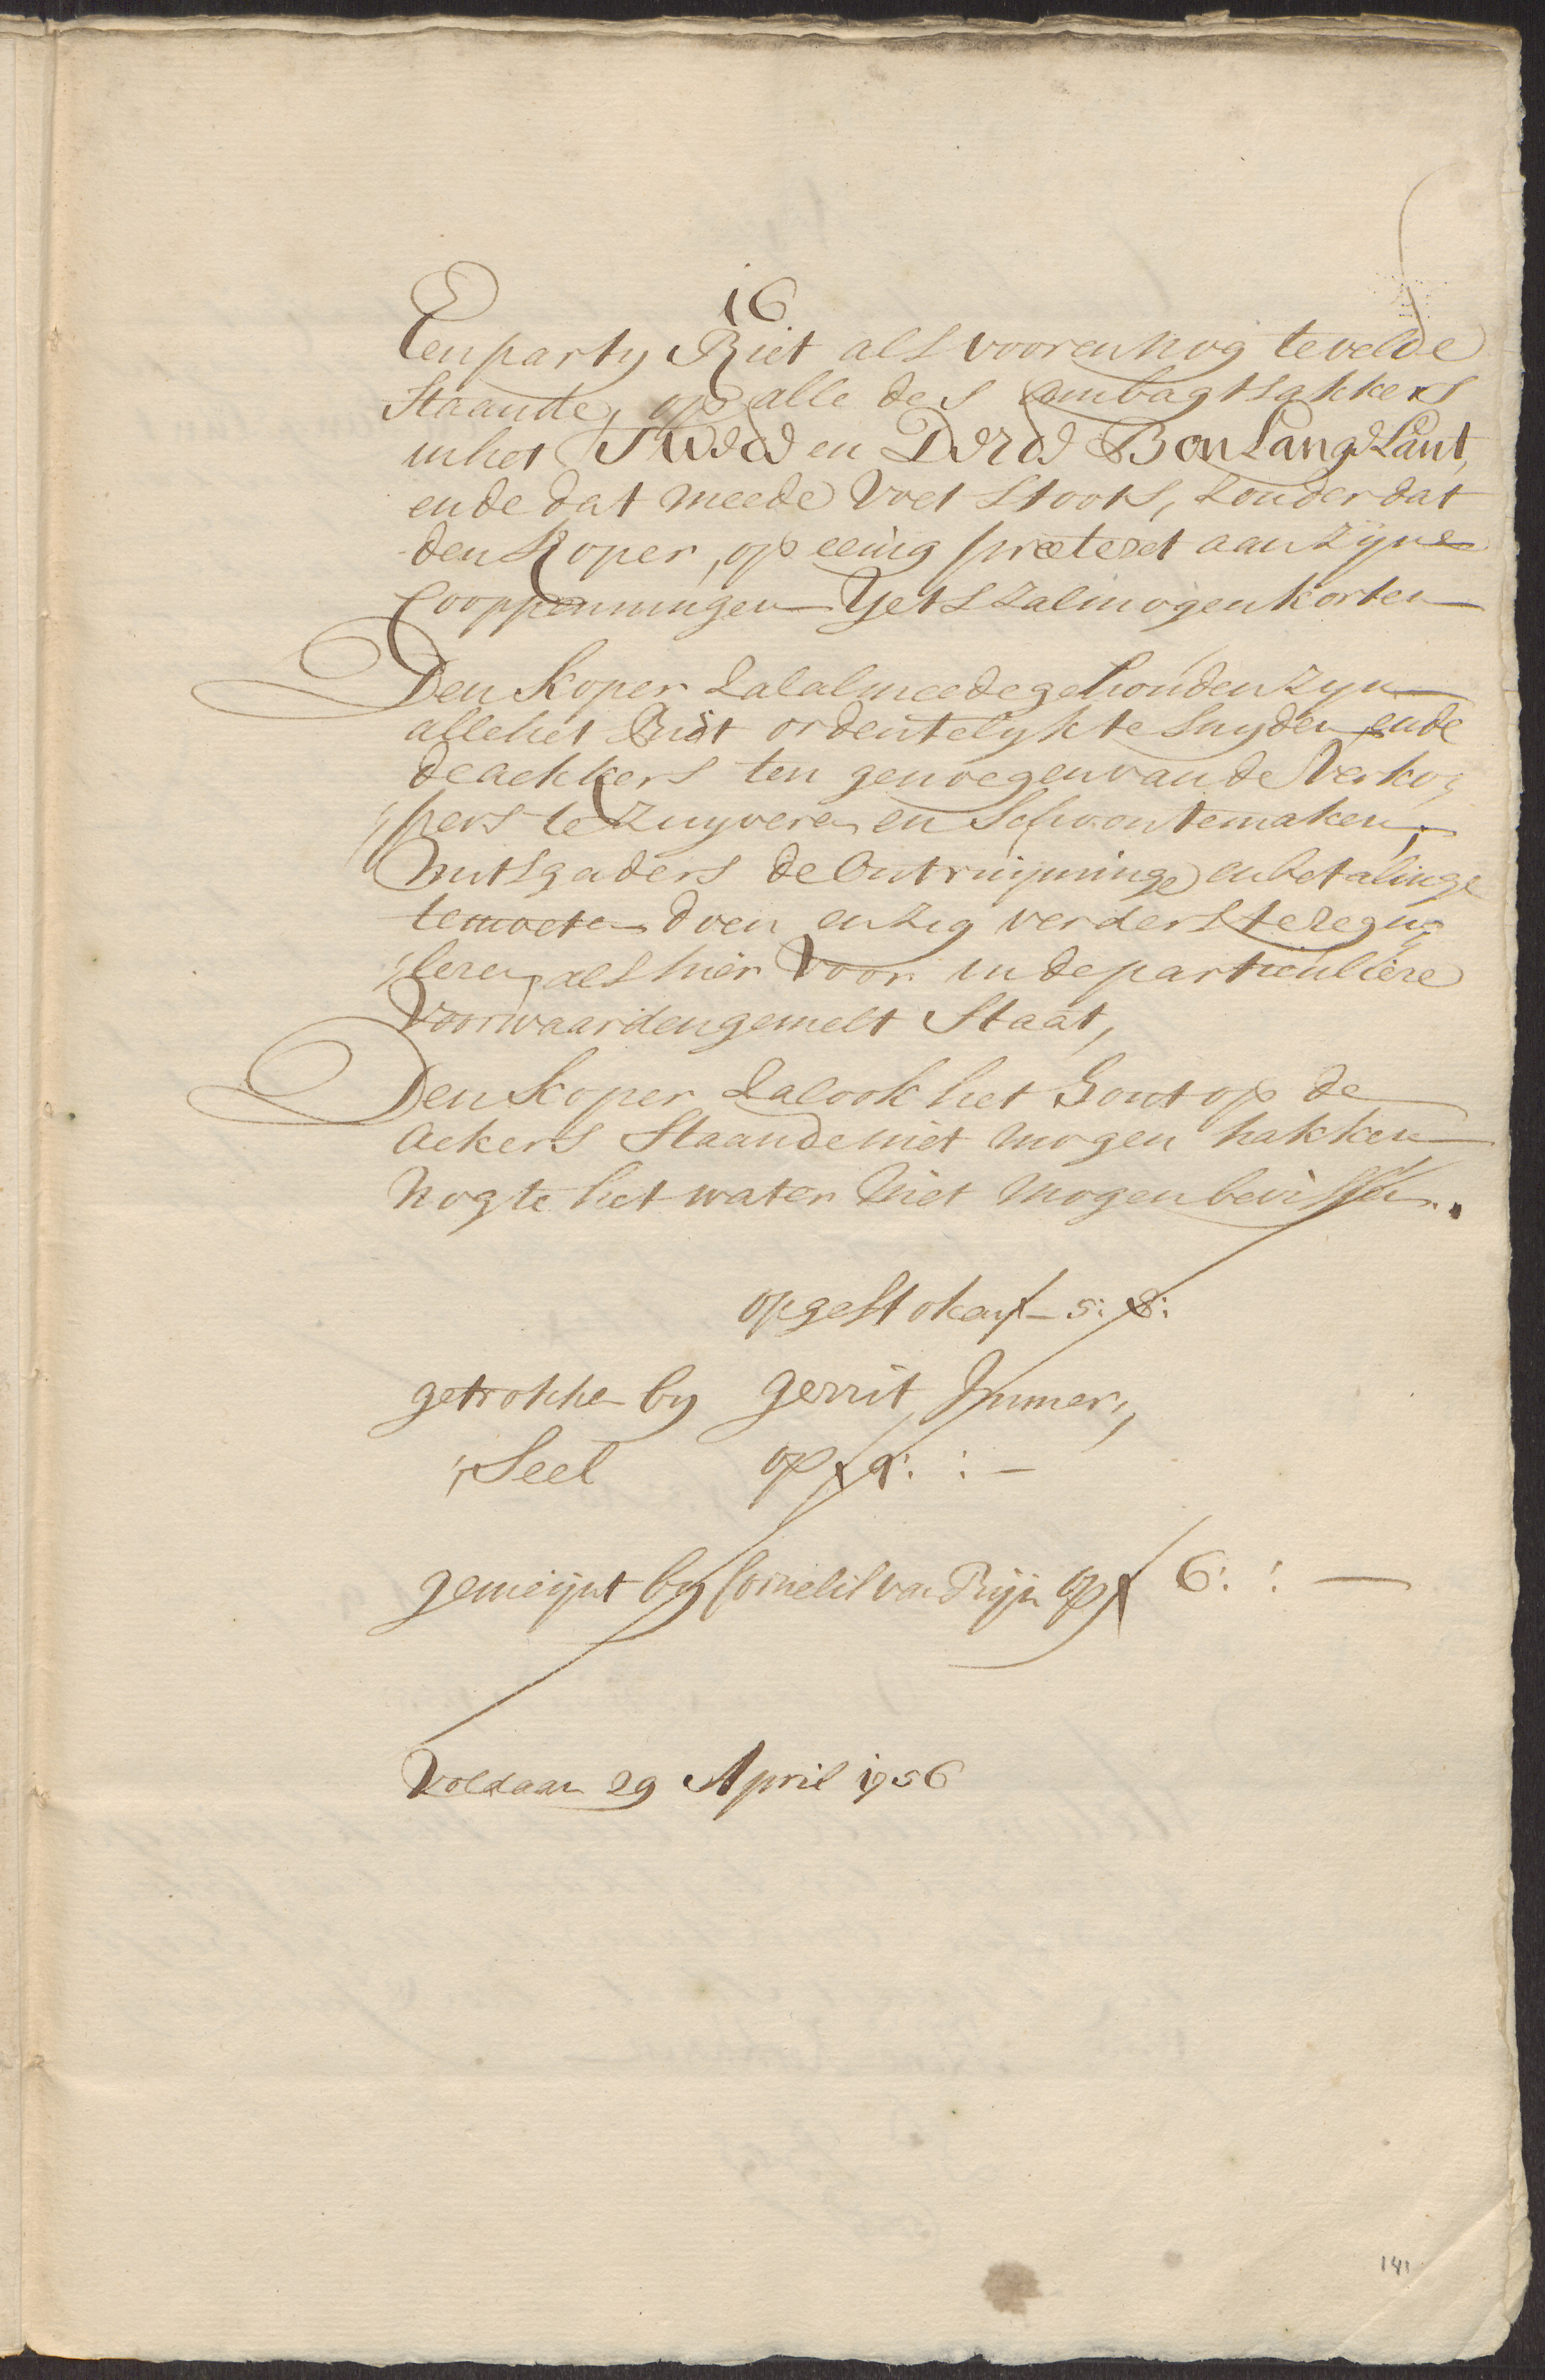 16
Een party Riet als vooren nog te velde
Staande, op alle des Ambagtsakkers
in het Twede en Derde Bon Lange Lant,
ende dat meede Voet Stoots, zonder dat
den Koper, op eenig prætext aan zijne
Cooppenningen Yets zal mogen korten
Den Koper zal al meede gehouden zijn
alle het Riet ordentelyk te snyden ende
de ackkers ten genoegen van de Verko„
„pers te zuyveren en Schoon te maken,
Mitsgaders de Ontruijminge en betalinge
te moeten doen en zig verders te regu„
„leren, als hier Voor in de particuliere
Voorwaarden gemelt Staat,
Den Koper zal ook het Hout op de
Ackers Staande niet mogen hakken
nogte het water niet mogen bevissen.
opgestoken f - 5: 8:
getrokken by Gerrit Immer„
„seel op f 9: : -
gemeijnt by Cornelis van Rijn op f 6: : —
Voldaan 29 April 1756
141